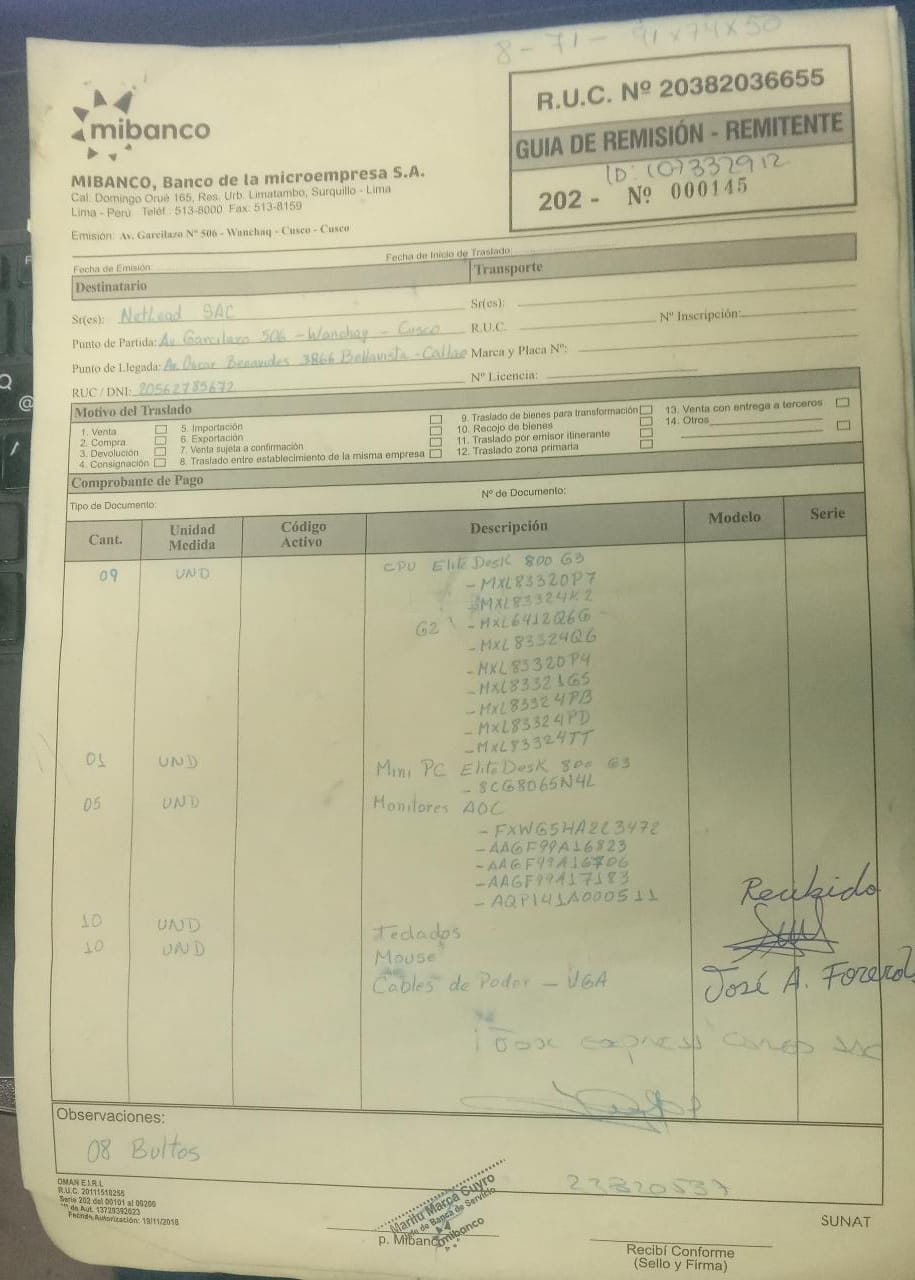 8 - 71 - 91x74x50
mibanco
MIBANCO, Banco de la microempresa S.A.
Cal. Domingo Orué 165, Res. Urb. Limatambo, Surquillo - Lima
Lima - Perú Teléf.: 513-8000 Fax: 513-8159
Emisión: Av. Garcilazo Nº 506 - Wanchaq - Cusco - Cusco
R.U.C. Nº 20382036655
GUIA DE REMISIÓN - REMITENTE
ID: 107332912
202 - Nº 000145
Fecha de Emisión: Fecha de Inicio de Traslado:
Destinatario Transporte
Sr(es): NetLead SAC Sr(es):
Punto de Partida: Av Garcilazo 506 - Wanchaq - Cusco R.U.C. Nº Inscripción:
Punto de Llegada: Av. Oscar Benavides 3866 Bellavista - Callao Marca y Placa Nº:
RUC / DNI: 20562785672 Nº Licencia:
Motivo del Traslado
1. Venta 5. Importación 9. Traslado de bienes para transformación 13. Venta con entrega a terceros
2. Compra 6. Exportación 10. Recojo de bienes 14. Otros
3. Devolución 7. Venta sujeta a confirmación 11. Traslado por emisor itinerante
4. Consignación 8. Traslado entre establecimiento de la misma empresa 12. Traslado zona primaria
Comprobante de Pago
Tipo de Documento: Nº de Documento:
Cant. Unidad Medida Código Activo Descripción Modelo Serie
09 UND CPU EliteDesk 800 G3
- MXL83320P7
- MXL83324K2
G2 - MXL6412Q6G
- MXL83324QG
- MXL83320P4
- MXL83321G5
- MXL83324PB
- MXL83324PD
- MXL83324TT
01 UND Mini PC EliteDesk 800 G3
- 8CG8065N4L
05 UND Monitores AOC
- FXWG5HA223472
- AAGF99A16823
- AAGF99A16706
- AAGF99A17183
- AQPI41A000511
10 UND Teclados
10 UND Mouse
Cables de Poder - VGA
Recibido
José A. Forero
express cargo sac
Observaciones:
08 Bultos
22820537
OMAN E.I.R.L
R.U.C. 20111518255
Serie 202 del 00101 al 00200
Nº de Aut. 13720392023
Fecha Autorización: 19/11/2018
Maritu Marca Cuyro
de Banca de Servicio
mibanco
p. Mibanco
Recibí Conforme
(Sello y Firma)
SUNAT